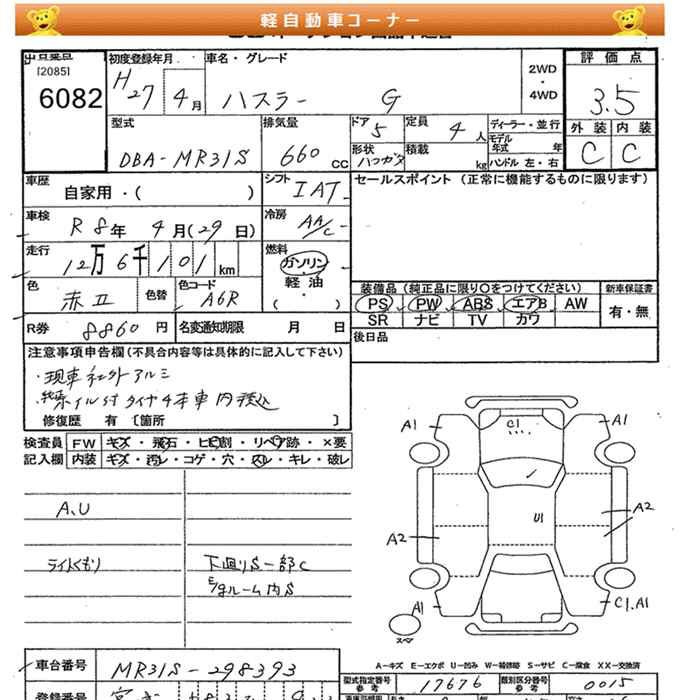 軽自動車コーナー
[2085]
6082
初度登録年月
H27 4月
車名・グレード
ハスラー G
2WD
・
4WD
評価点
3.5
外装 内装
C C
型式
DBA-MR31S
排気量
660 cc
ドア 5
形状
定員 4人
積載 kg
ディーラー・並行
モデル年式 年
ハンドル 左・右
車歴
自家用・( )
シフト
IAT
セールスポイント (正常に機能するものに限ります)
車検
R8年 4月(29日)
冷房
AA/C
走行
12万6千101km
燃料
ガソリン
軽油
・
( )
色
赤II
色替
色コード
A6R
装備品 (純正品に限り○をつけてください)
新車保証書
PS PW ABS エアB AW
有・無
SR ナビ TV カワ
R券 8860円
名変通知期限 月 日
後日品
注意事項申告欄(不具合内容等は具体的に記入して下さい)
・現車社外アルミ
・純正ホイル付タイヤ4本車内積込
修復歴 有 〔箇所 〕
検査員 FW キズ・飛石・ヒビ割・リペア跡・×要
記入欄 内装 キズ・汚レ・コゲ・穴・スレ・キレ・破レ
A1
C1
A1
A、U
U1
A2
A2
ライトくもり
下廻りS一部C
E/gルーム内S
A1
C1.A1
スペア
A-キズ E-エクボ U-凹み W-補修跡 S-サビ C-腐食 XX-交換済
車台番号
MR31S-298393
型式指定番号
参考
17676
類別区分番号
参考
0015
登録番号